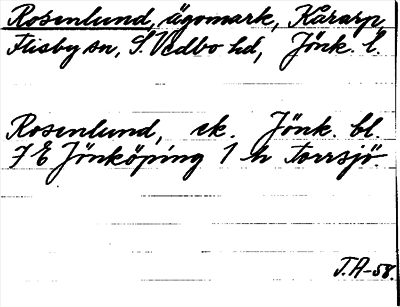 Rosenlund, ägomark, Kararp
Flisby sn, S. Vedbo hd, Jönk. l.
Rosenlund, ek. Jönk. bl.
7 E Jönköping 1 h Torrsjö.
J.A-58.